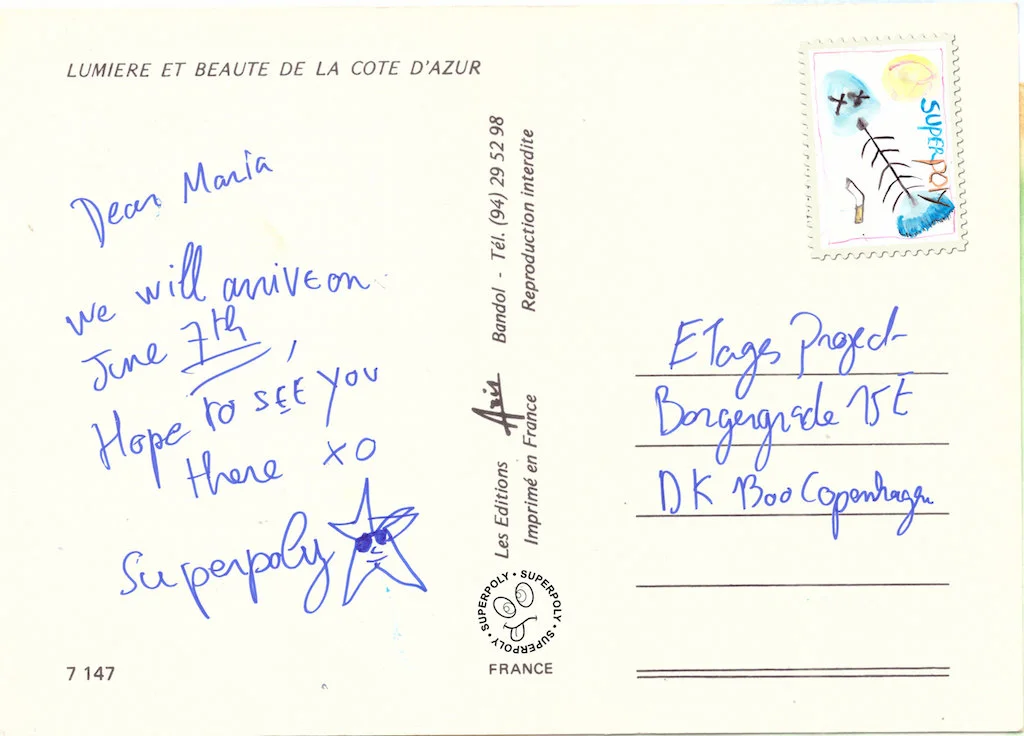 LUMIERE ET BEAUTE DE LA COTE D'AZUR
Dear Maria
we will arrive on
June 7th,
Hope to SEE you
there XO
Superpoly
7 147
Les Editions Aris Bandol - Tél. (94) 29 52 98
Imprimé en France Reproduction interdite
SUPERPOLY • SUPERPOLY • SUPERPOLY •
FRANCE
SUPERPOLY
ETages Project
Borgergade 15E
DK 1300 Copenhagen